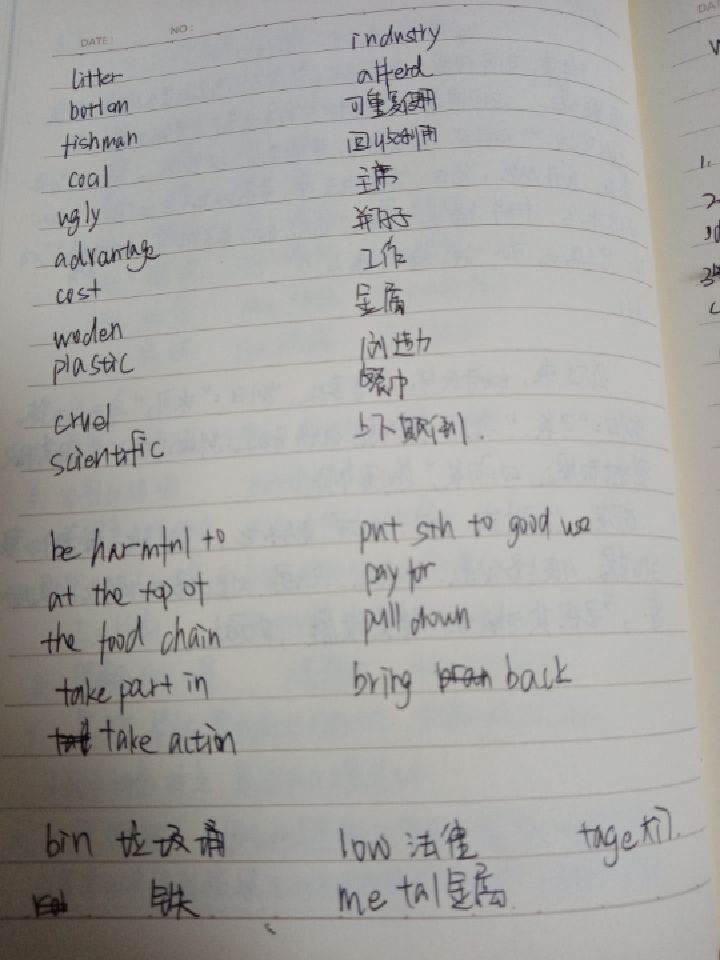 DATE: NO:
industry
litter
afferd
bottom
可重复使用
fishman
回收利用
coal
主席
ugly
并肩子
advantage
工作
cost
金属
woden
创造力
plastic
cruel
上下颠倒.
scientific
be harmful to
put sth to good use
at the top of
pay for
the food chain
pull down
take part in
bring back
take action
bin 垃圾桶
low 法律
铁
me tal 金属